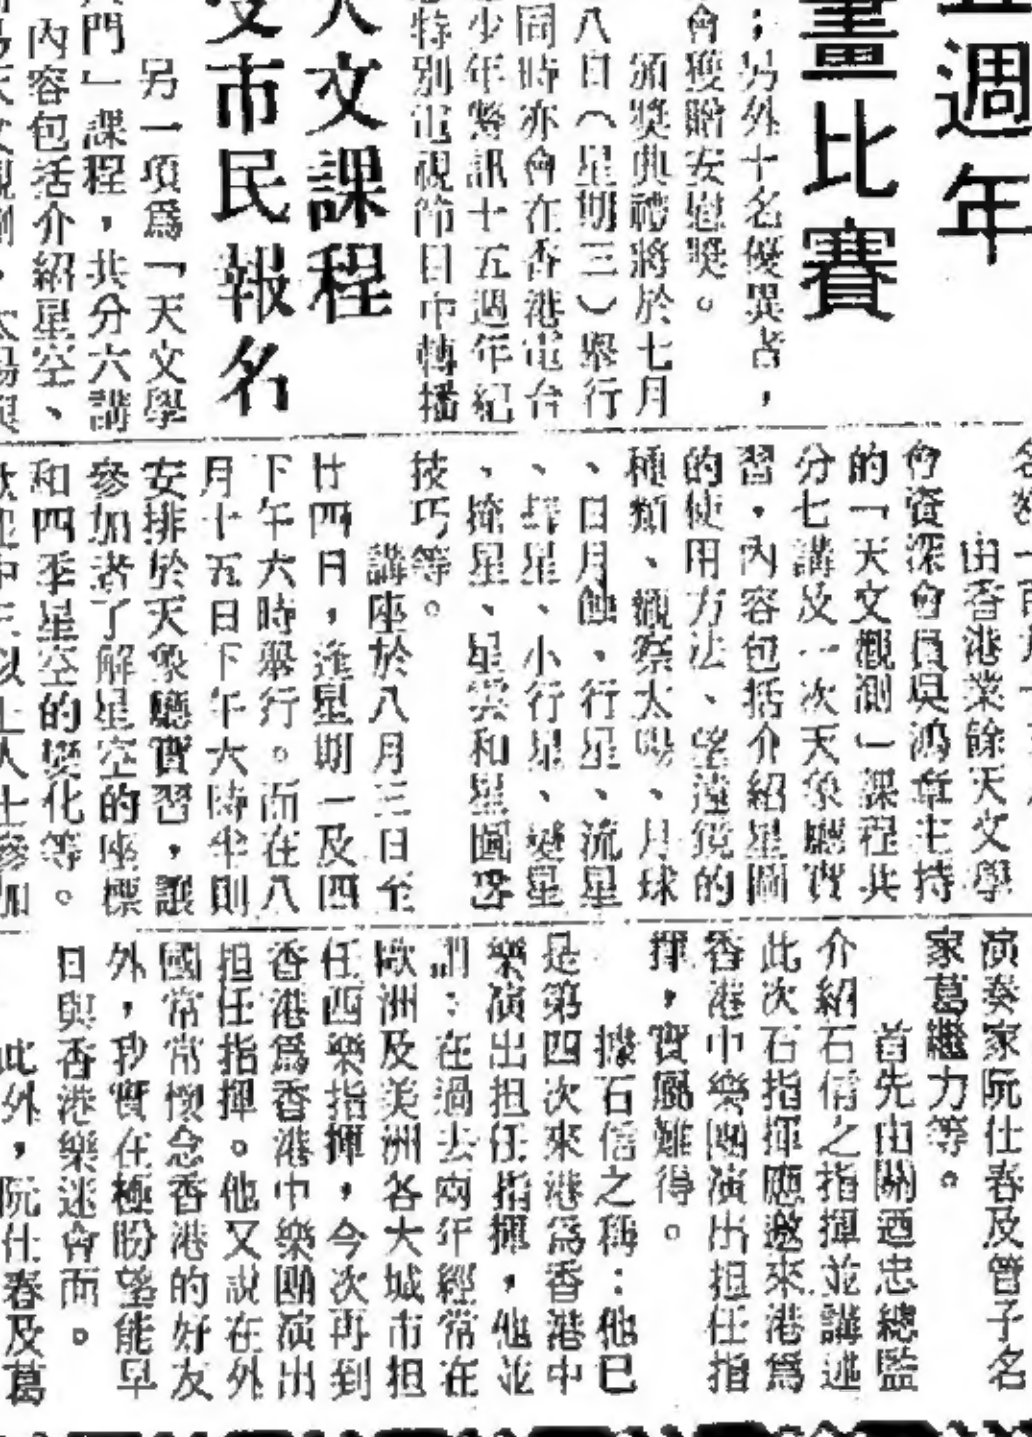 週年
畫比賽
；另外十名優異者，
會獲贈安慰獎。
頒獎典禮將於七月
八日（星期三）舉行
同時亦會在香港電台
少年警訊十五週年紀
特別電視節目中轉播
人文課程
受市民報名
另一項爲「天文學
門」課程，共分六講
內容包括介紹星空、
由香港業餘天文學
會資深會員吳鴻章主持
的「天文觀測」課程共
分七講及一次天象廳實
習，內容包括介紹星圖
的使用方法、望遠鏡的
種類、觀察太陽、月球
、日月蝕、行星、流星
、彗星、小行星、變星
、掩星、星雲和星團
技巧等。
講座於八月三日至
廿四日，逢星期一及四
下午六時舉行。而在八
月十五日下午六時半則
安排於天象廳實習，讓
參加者了解星空的座標
和四季星空的變化等。
歡迎中三以上人士參加
演奏家阮仕春及管子名
家葛繼力等。
首先由關迺忠總監
介紹石信之指揮並講述
此次石指揮應邀來港爲
香港中樂團演出担任指
揮，實屬難得。
據石信之稱：他已
是第四次來港爲香港中
樂演出担任指揮，他並
謂：在過去兩年經常在
歐洲及美洲各大城市担
任西樂指揮，今次再到
香港爲香港中樂團演出
担任指揮。他又說在外
國常常懷念香港的好友
外，我實在極盼望能早
日與香港樂迷會面。
此外，阮仕春及葛